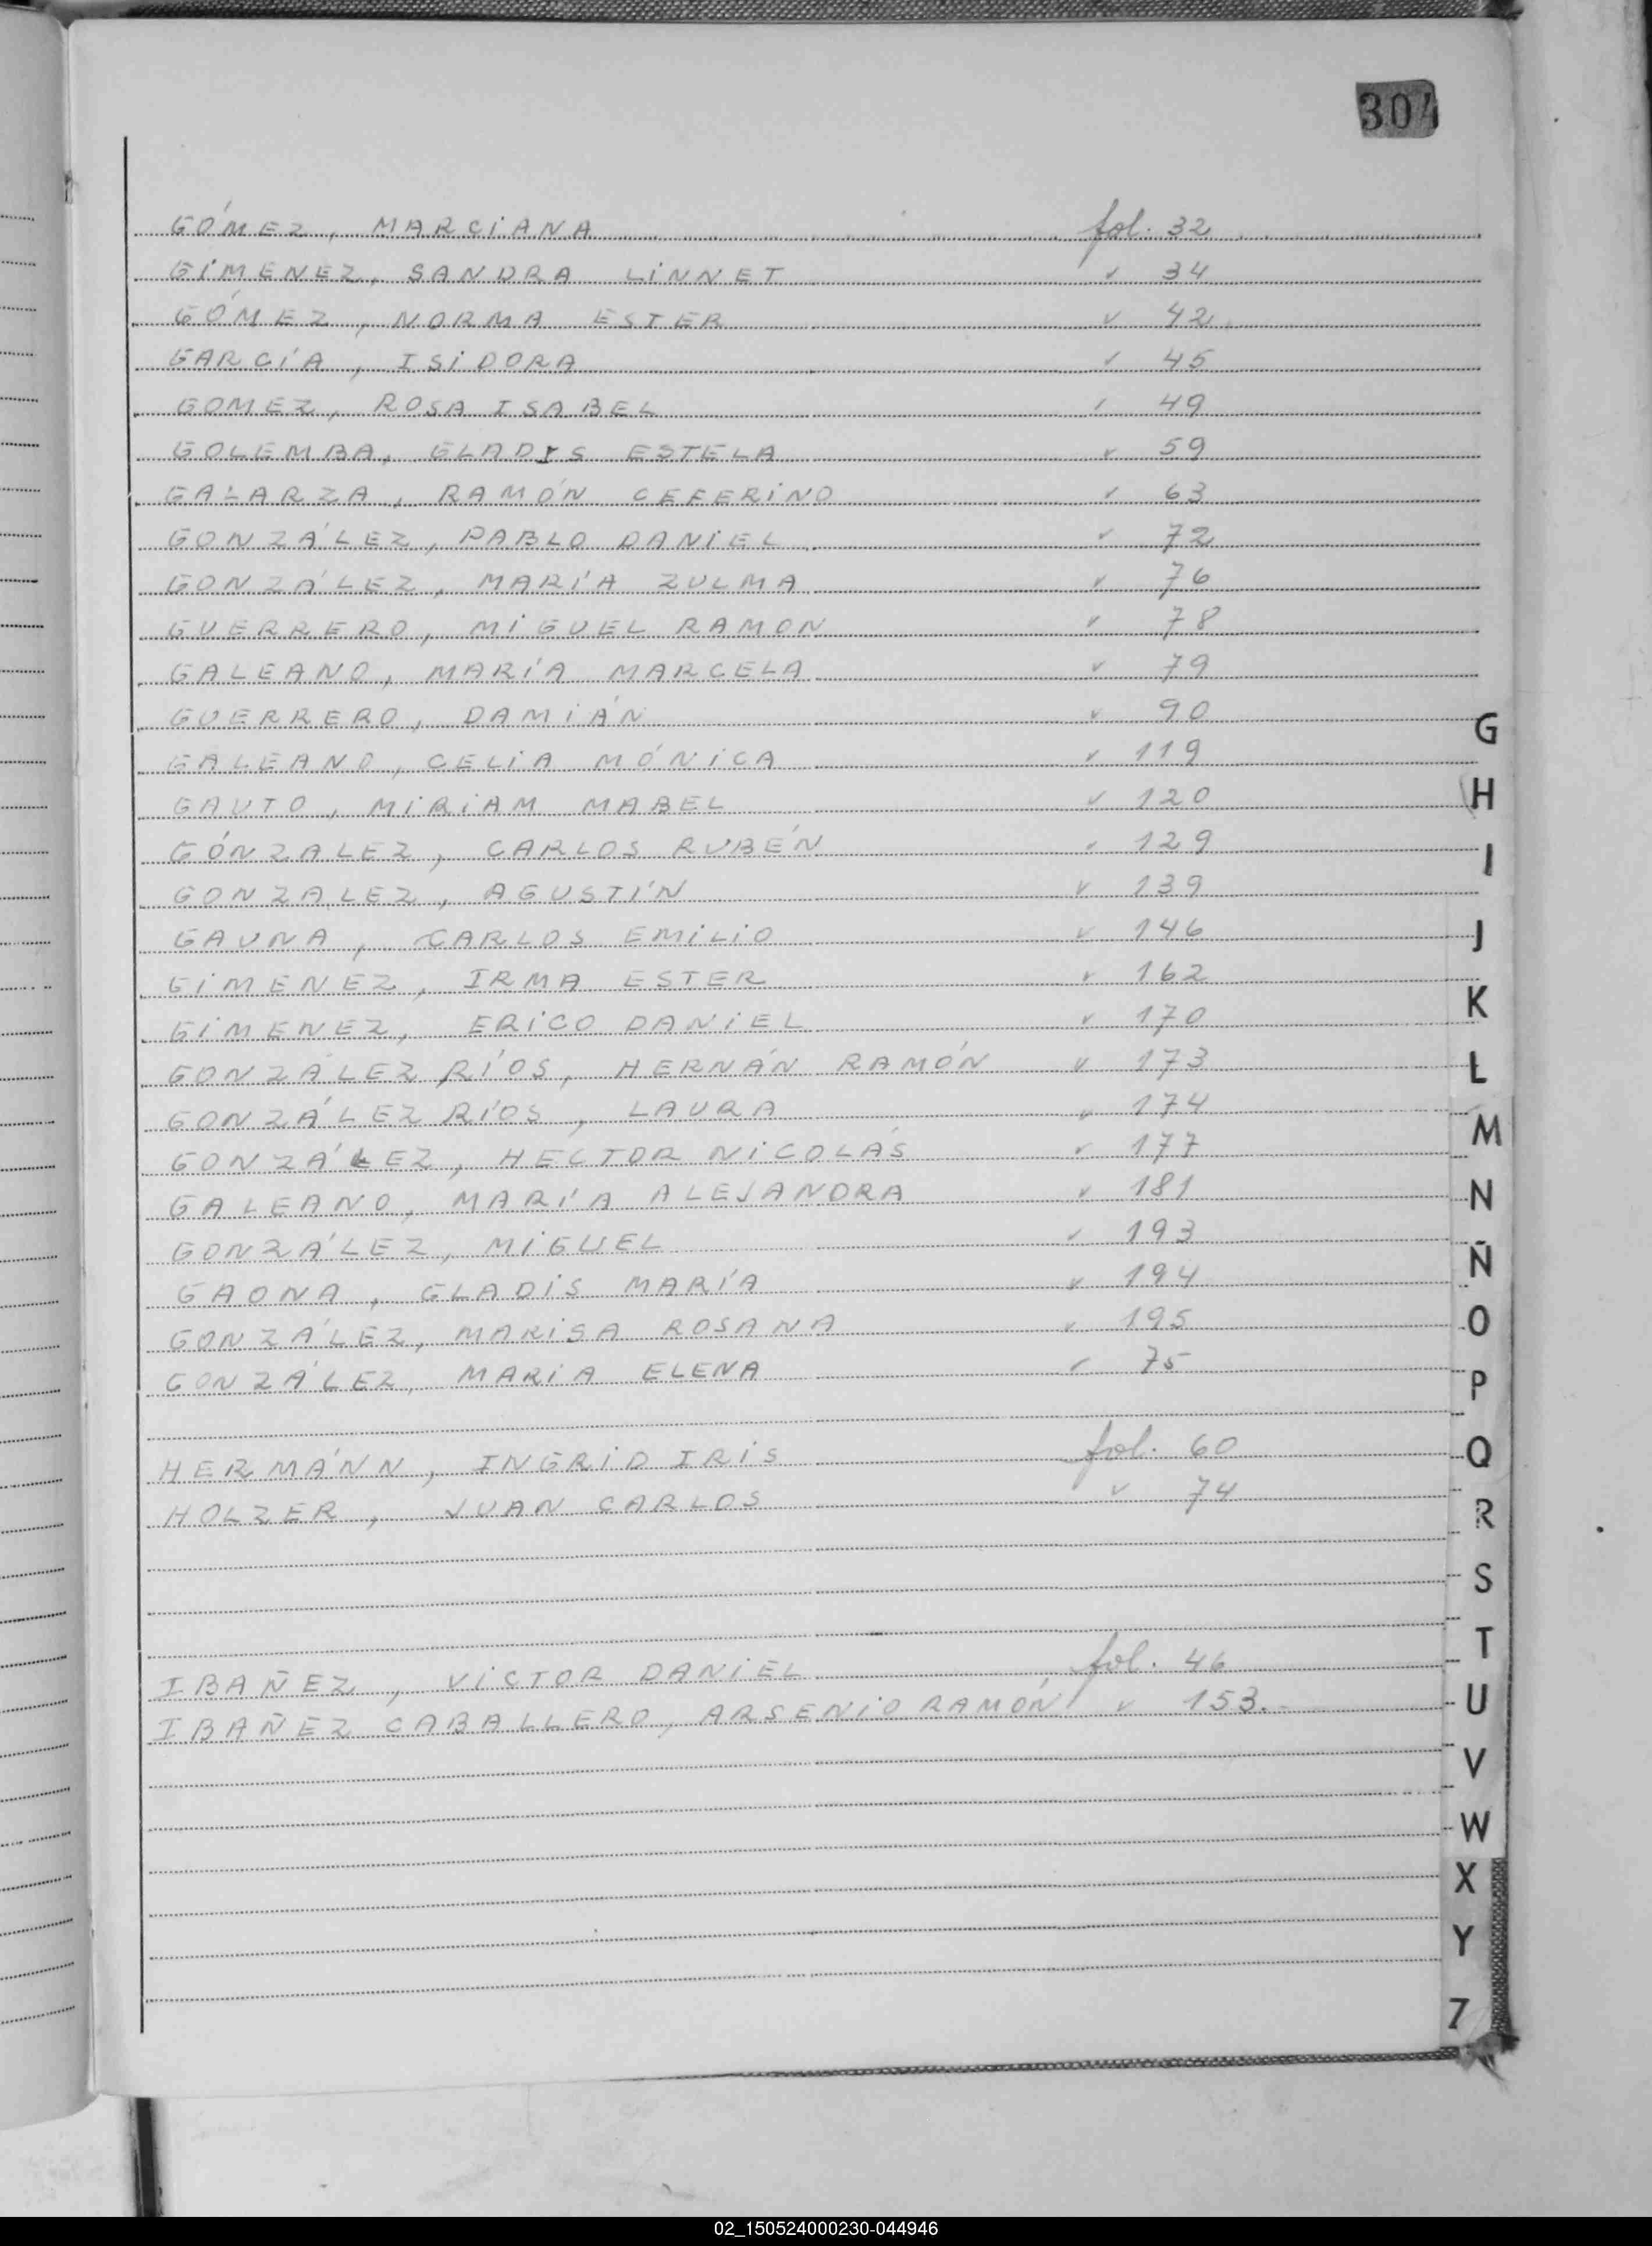 304
GÓMEZ, MARCIANA fol. 32
GIMENEZ, SANDRA LINNET " 34
GÓMEZ, NORMA ESTER " 42
GARCÍA, ISIDORA " 45
GOMEZ, ROSA ISABEL " 49
GOLEMBA, GLADIS ESTELA " 59
GALARZA, RAMÓN CEFERINO " 63
GONZÁLEZ, PABLO DANIEL " 72
GONZÁLEZ, MARÍA ZULMA " 76
GUERRERO, MIGUEL RAMON " 78
GALEANO, MARÍA MARCELA " 79
GUERRERO, DAMIÁN " 90
GALEANO, CELIA MÓNICA " 119
GAUTO, MIRIAM MABEL " 120
GÓNZALEZ, CARLOS RUBÉN " 129
GONZALEZ, AGUSTÍN " 139
GAUNA, CARLOS EMILIO " 146
GIMENEZ, IRMA ESTER " 162
GIMENEZ, ERICO DANIEL " 170
GONZÁLEZ RÍOS, HERNÁN RAMÓN " 173
GONZÁLEZ RÍOS, LAURA " 174
GONZÁLEZ, HECTOR NICOLÁS " 177
GALEANO, MARÍA ALEJANDRA " 181
GONZÁLEZ, MIGUEL " 193
GAONA, GLADIS MARÍA " 194
GONZÁLEZ, MARISA ROSANA " 195
GONZÁLEZ, MARIA ELENA " 75
HERMÁNN, INGRID IRIS fol. 60
HOLZER, JUAN CARLOS " 74
IBAÑEZ, VICTOR DANIEL fol. 46
IBAÑEZ CABALLERO, ARSENIO RAMÓN " 153.
G
H
I
J
K
L
M
N
Ñ
O
P
Q
R
S
T
U
V
W
X
Y
Z
02_150524000230-044946